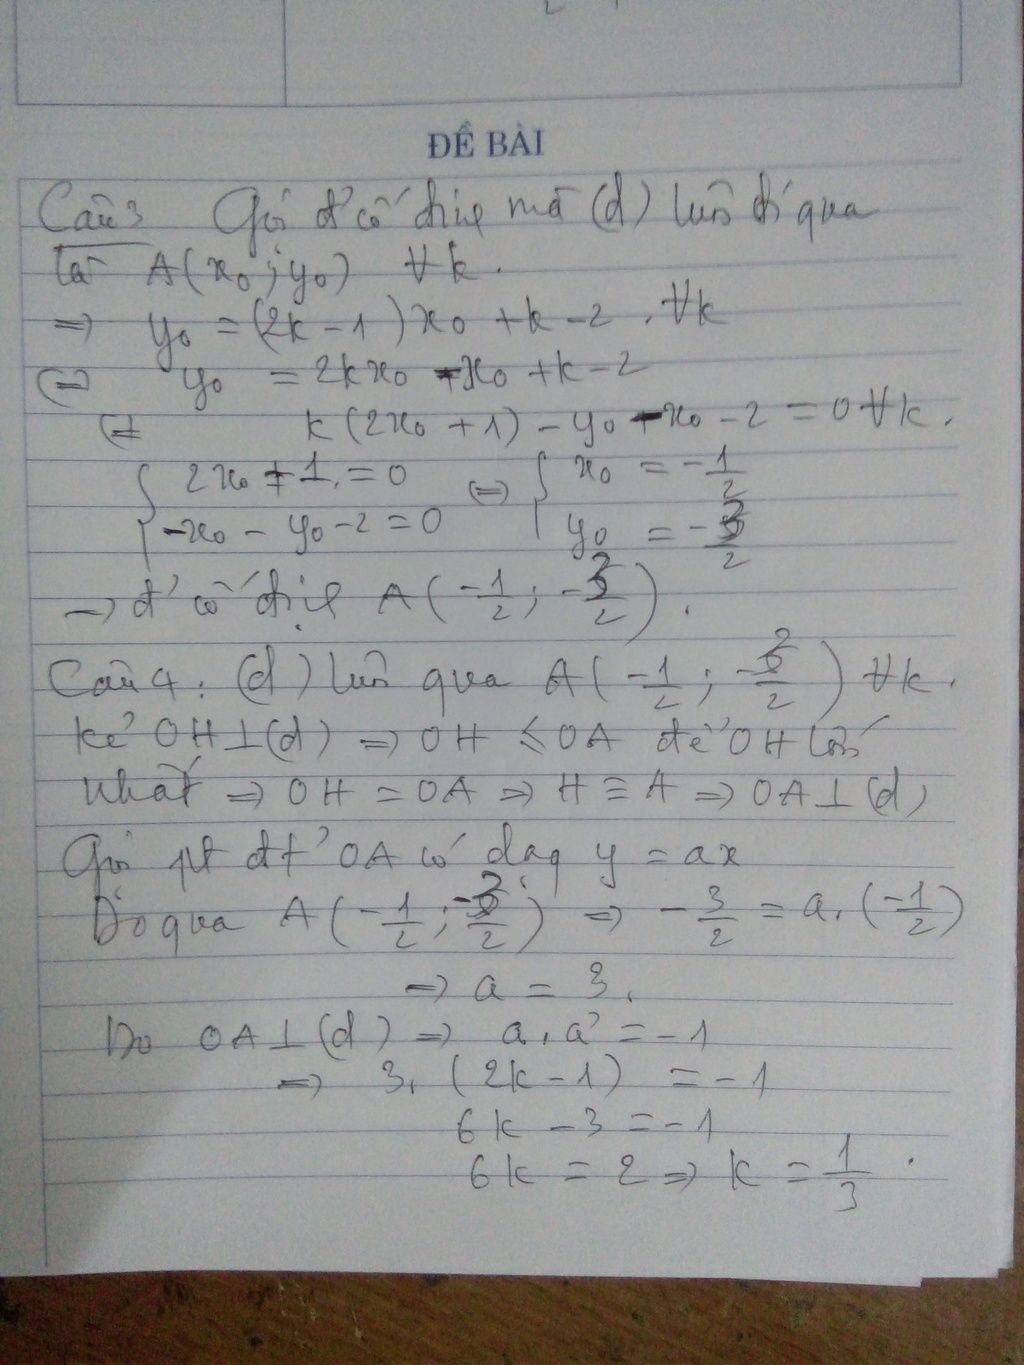 ĐỀ BÀI
Câu 3 Gọi đ' cố định mà (d) luôn đi qua
là A(x₀; y₀) ∀k.
=> y₀ = (2k - 1)x₀ + k - 2, ∀k
<=> y₀ = 2kx₀ - x₀ + k - 2
<=> k(2x₀ + 1) - y₀ - x₀ - 2 = 0 ∀k.
{ 2x₀ + 1 = 0 <=> { x₀ = -1/2
-x₀ - y₀ - 2 = 0 y₀ = -3/2
-> đ' cố định A(-1/2; -3/2).
Câu 4: (d) luôn qua A(-1/2; -3/2) ∀k.
kẻ OH⊥(d) => OH ≤ OA để OH lớn
nhất => OH = OA => H ≡ A => OA⊥(d)
Gọi pt đt' OA có dạng y = ax
Do qua A(-1/2; -3/2) => -3/2 = a.(-1/2)
=> a = 3.
Do OA⊥(d) => a.a' = -1
=> 3.(2k - 1) = -1
6k - 3 = -1
6k = 2 => k = 1/3.